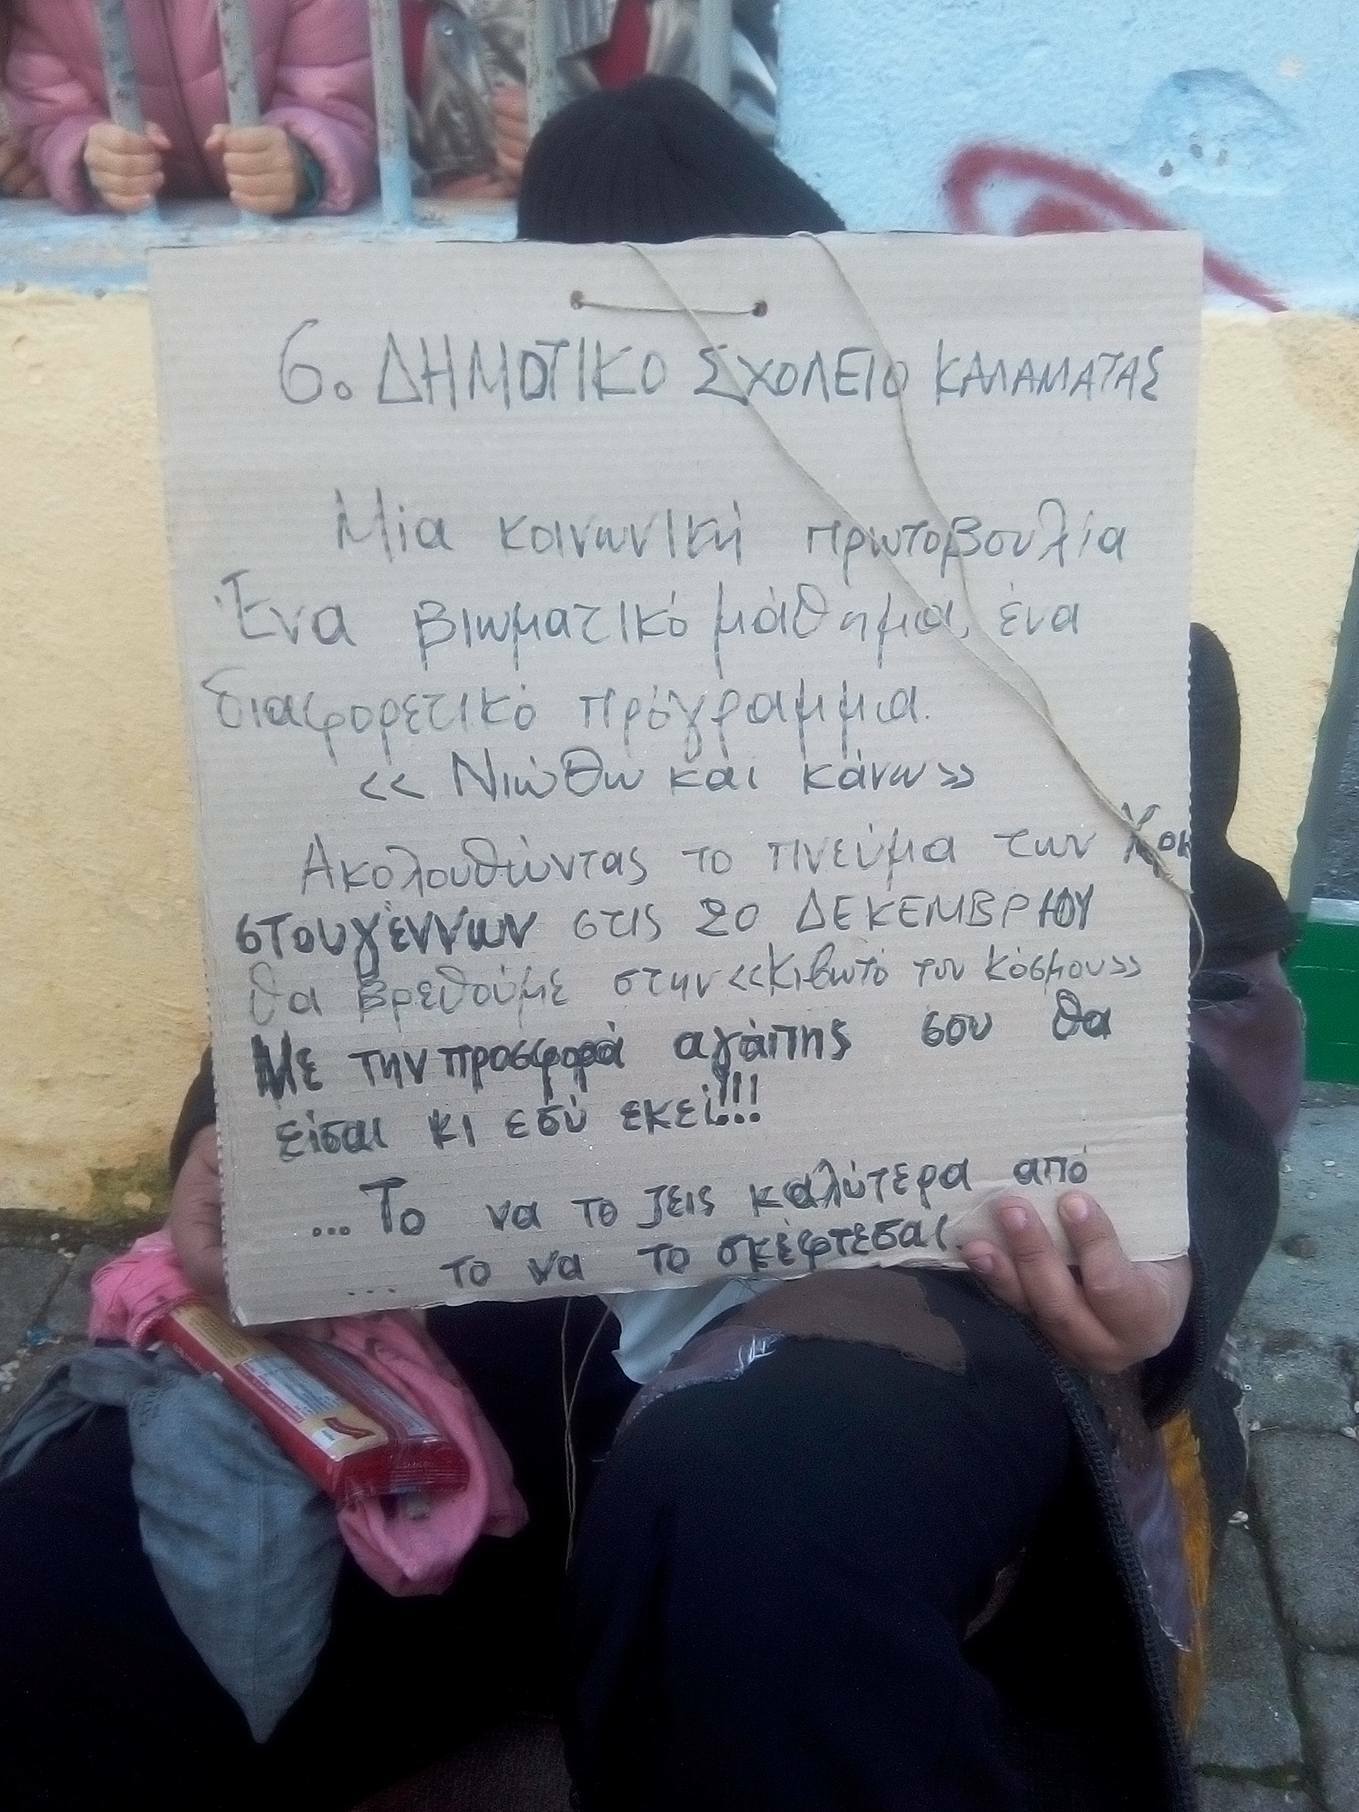 6ο ΔΗΜΟΤΙΚΟ ΣΧΟΛΕΙΟ ΚΑΛΑΜΑΤΑΣ
Μια κοινωνική πρωτοβουλία
Ένα βιωματικό μάθημα, ένα
διαφορετικό πρόγραμμα.
«Νιώθω και κάνω»
Ακολουθώντας το πνεύμα των
στουγέννων στις 20 ΔΕΚΕΜΒΡΙΟΥ
θα βρεθούμε στην «Κιβωτό του κόσμου»
Με την προσφορά αγάπης σου θα
είσαι κι εσύ εκεί!!!
...Το να το ζεις καλύτερα από
... το να το σκέφτεσαι.